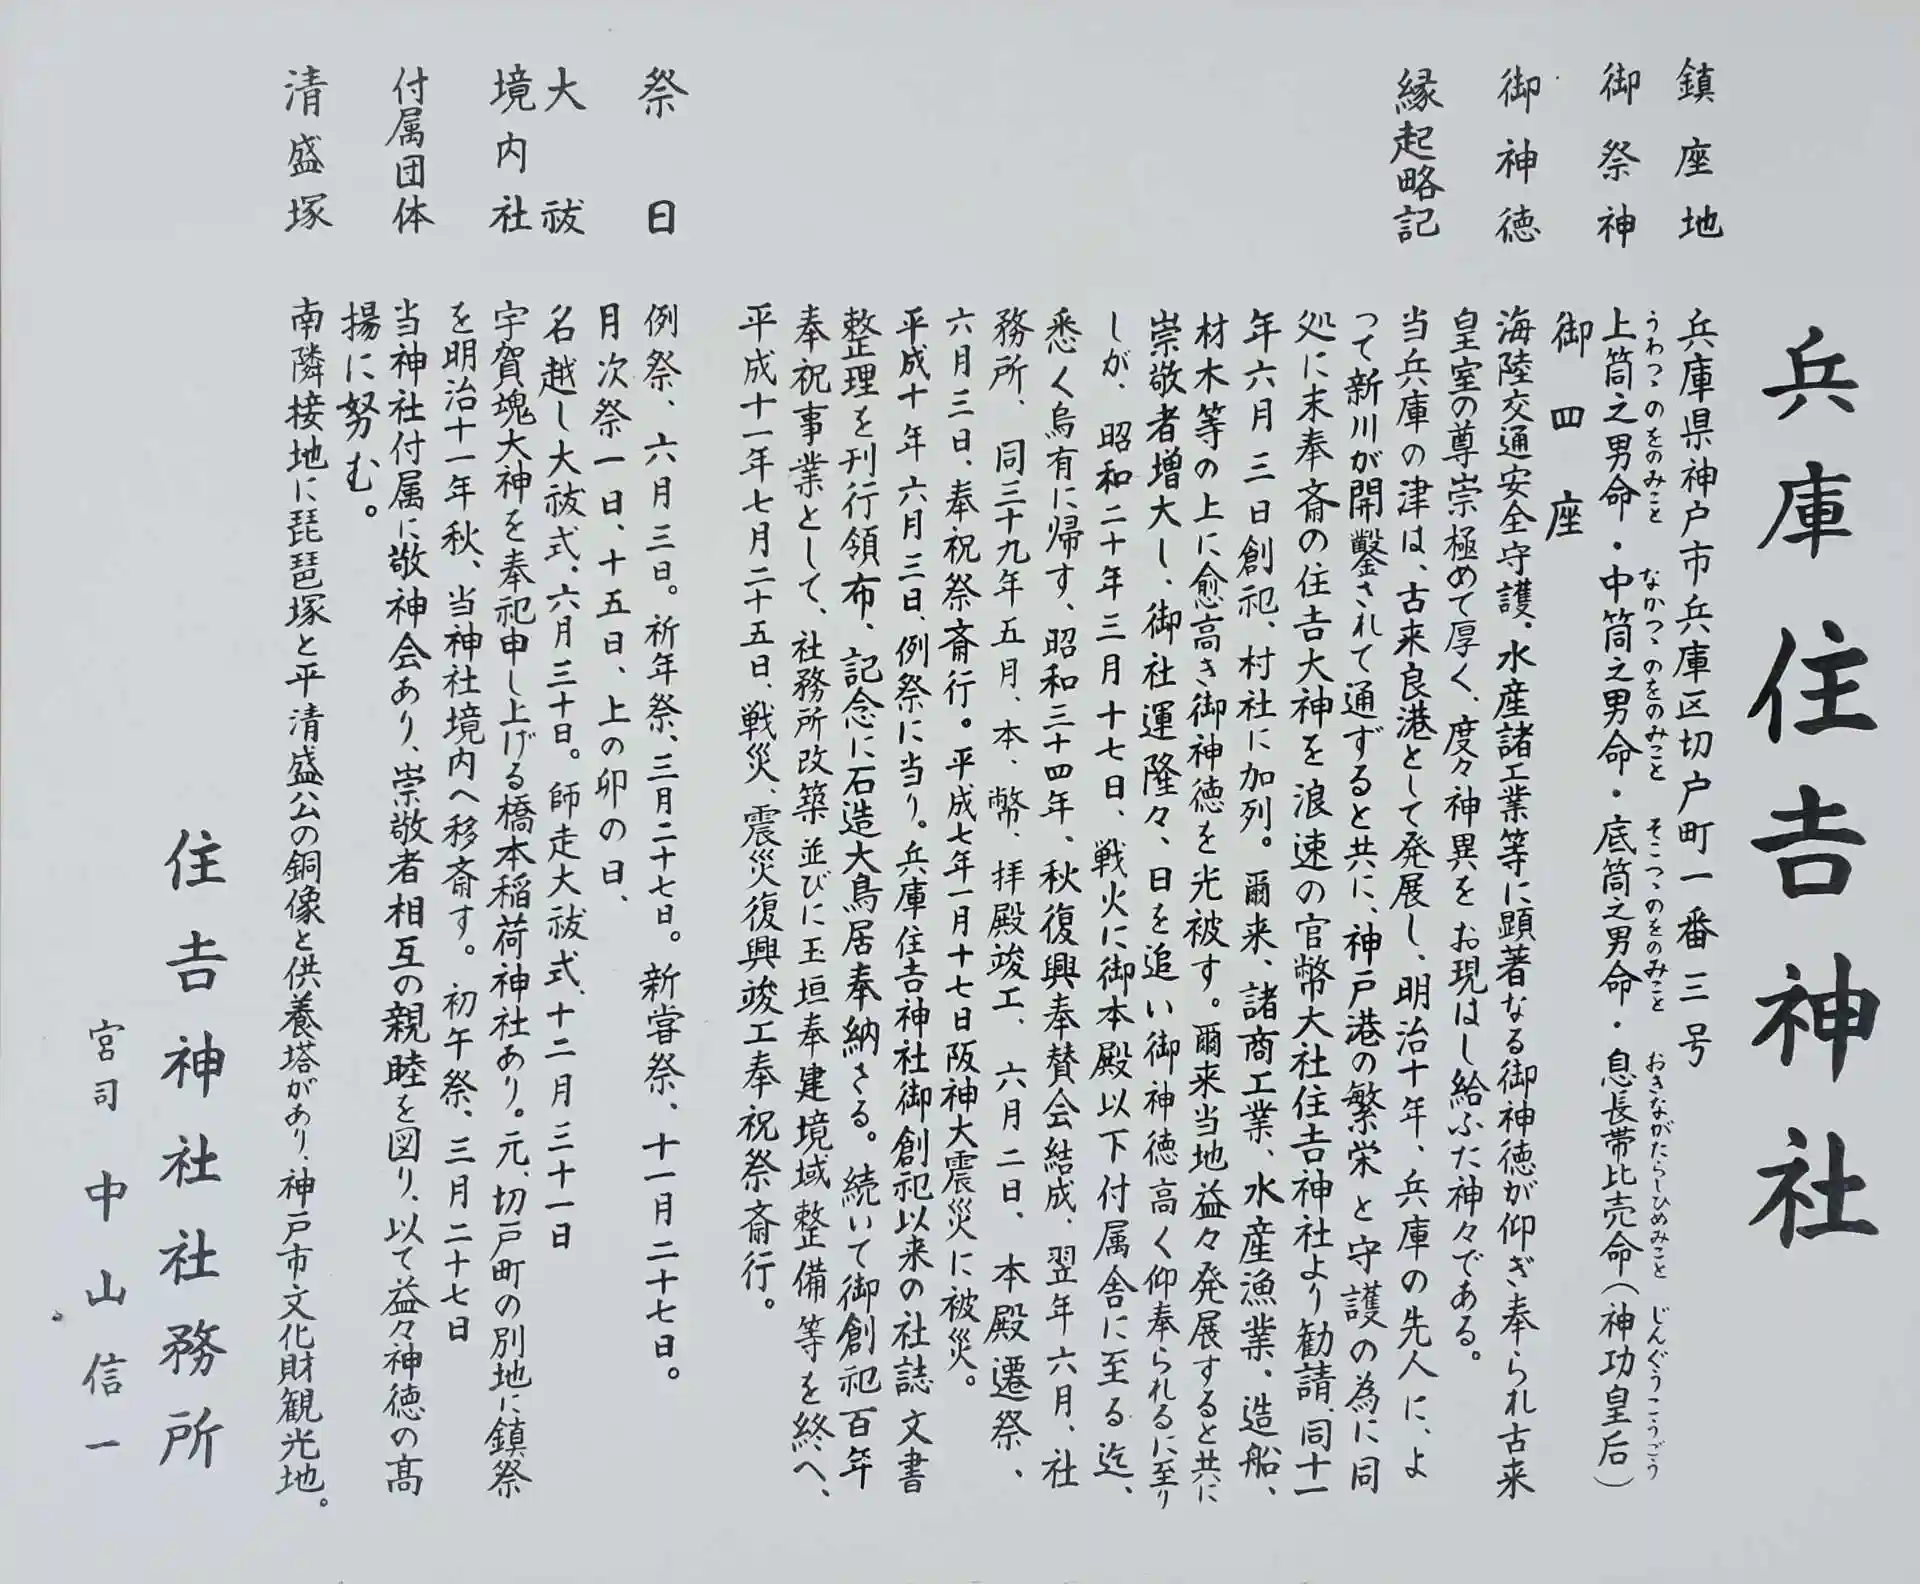 兵庫住吉神社
鎮座地 兵庫県神戸市兵庫区切戸町一番三号
うわつつのをのみこと なかつつのをのみこと そこつつのをのみこと おきながたらしひめみこと じんぐうこうごう
御祭神 上筒之男命・中筒之男命・底筒之男命・息長帯比売命(神功皇后)
御四座
御神徳 海陸交通安全守護。水産諸工業等に顕著なる御神徳が仰ぎ奉られ古来
皇室の尊崇極めて厚く、度々神異をお現はし給ふた神々である。
縁起略記 当兵庫の津は、古来良港として発展し、明治十年、兵庫の先人に、よ
って新川が開鑿されて通ずると共に、神戸港の繁栄と守護の為に同
処に末奉斎の住吉大神を浪速の官幣大社住吉神社より勧請、同十一
年六月三日創祀、村社に加列。爾来、諸商工業、水産漁業、造船、
材木等の上に愈高き御神徳を光被す。爾来当地益々発展すると共に
崇敬者増大し、御社運隆々、日を追い御神徳高く仰奉られるに至り
しが、昭和二十年三月十七日、戦火に御本殿以下付属舎に至る迄、
悉く烏有に帰す、昭和三十四年、秋復興奉賛会結成、翌年六月、社
務所、同三十九年五月、本、幣、拝殿竣工、六月二日、本殿遷祭、
六月三日、奉祝祭斎行。平成七年一月十七日阪神大震災に被災。
平成十年六月三日、例祭に当り。兵庫住吉神社御創祀以来の社誌文書
整理を刊行領布、記念に石造大鳥居奉納さる。続いて御創祀百年
奉祝事業として、社務所改築並びに玉垣奉建境域整備等を終へ、
平成十一年七月二十五日、戦災、震災復興竣工奉祝祭斎行。
祭日 例祭、六月三日。祈年祭、三月二十七日。新嘗祭、十一月二十七日。
月次祭一日、十五日、上の卯の日、
大祓 名越し大祓式、六月三十日。師走大祓式、十二月三十一日
境内社 宇賀魂大神を奉祀申し上げる橋本稲荷神社あり。元、切戸町の別地に鎮祭
を明治十一年秋、当神社境内へ移斎す。初午祭、三月二十七日
付属団体 当神社付属に敬神会あり、崇敬者相互の親睦を図り、以て益々神徳の高
揚に努む。
清盛塚 南隣接地に琵琶塚と平清盛公の銅像と供養塔があり、神戸市文化財観光地。
住吉神社社務所
宮司 中山信一